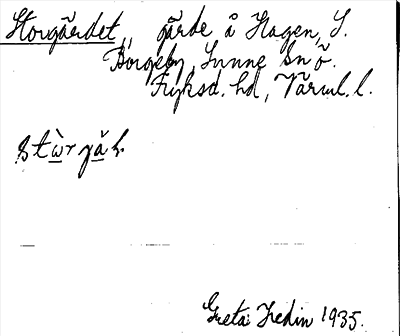 Storgärdet, gärde å Hagen, S.
Borgeby, Sunne sn ö.
Fryksd. hd, Värml. l.
stẁrjäh
Greta Hedin 1935.